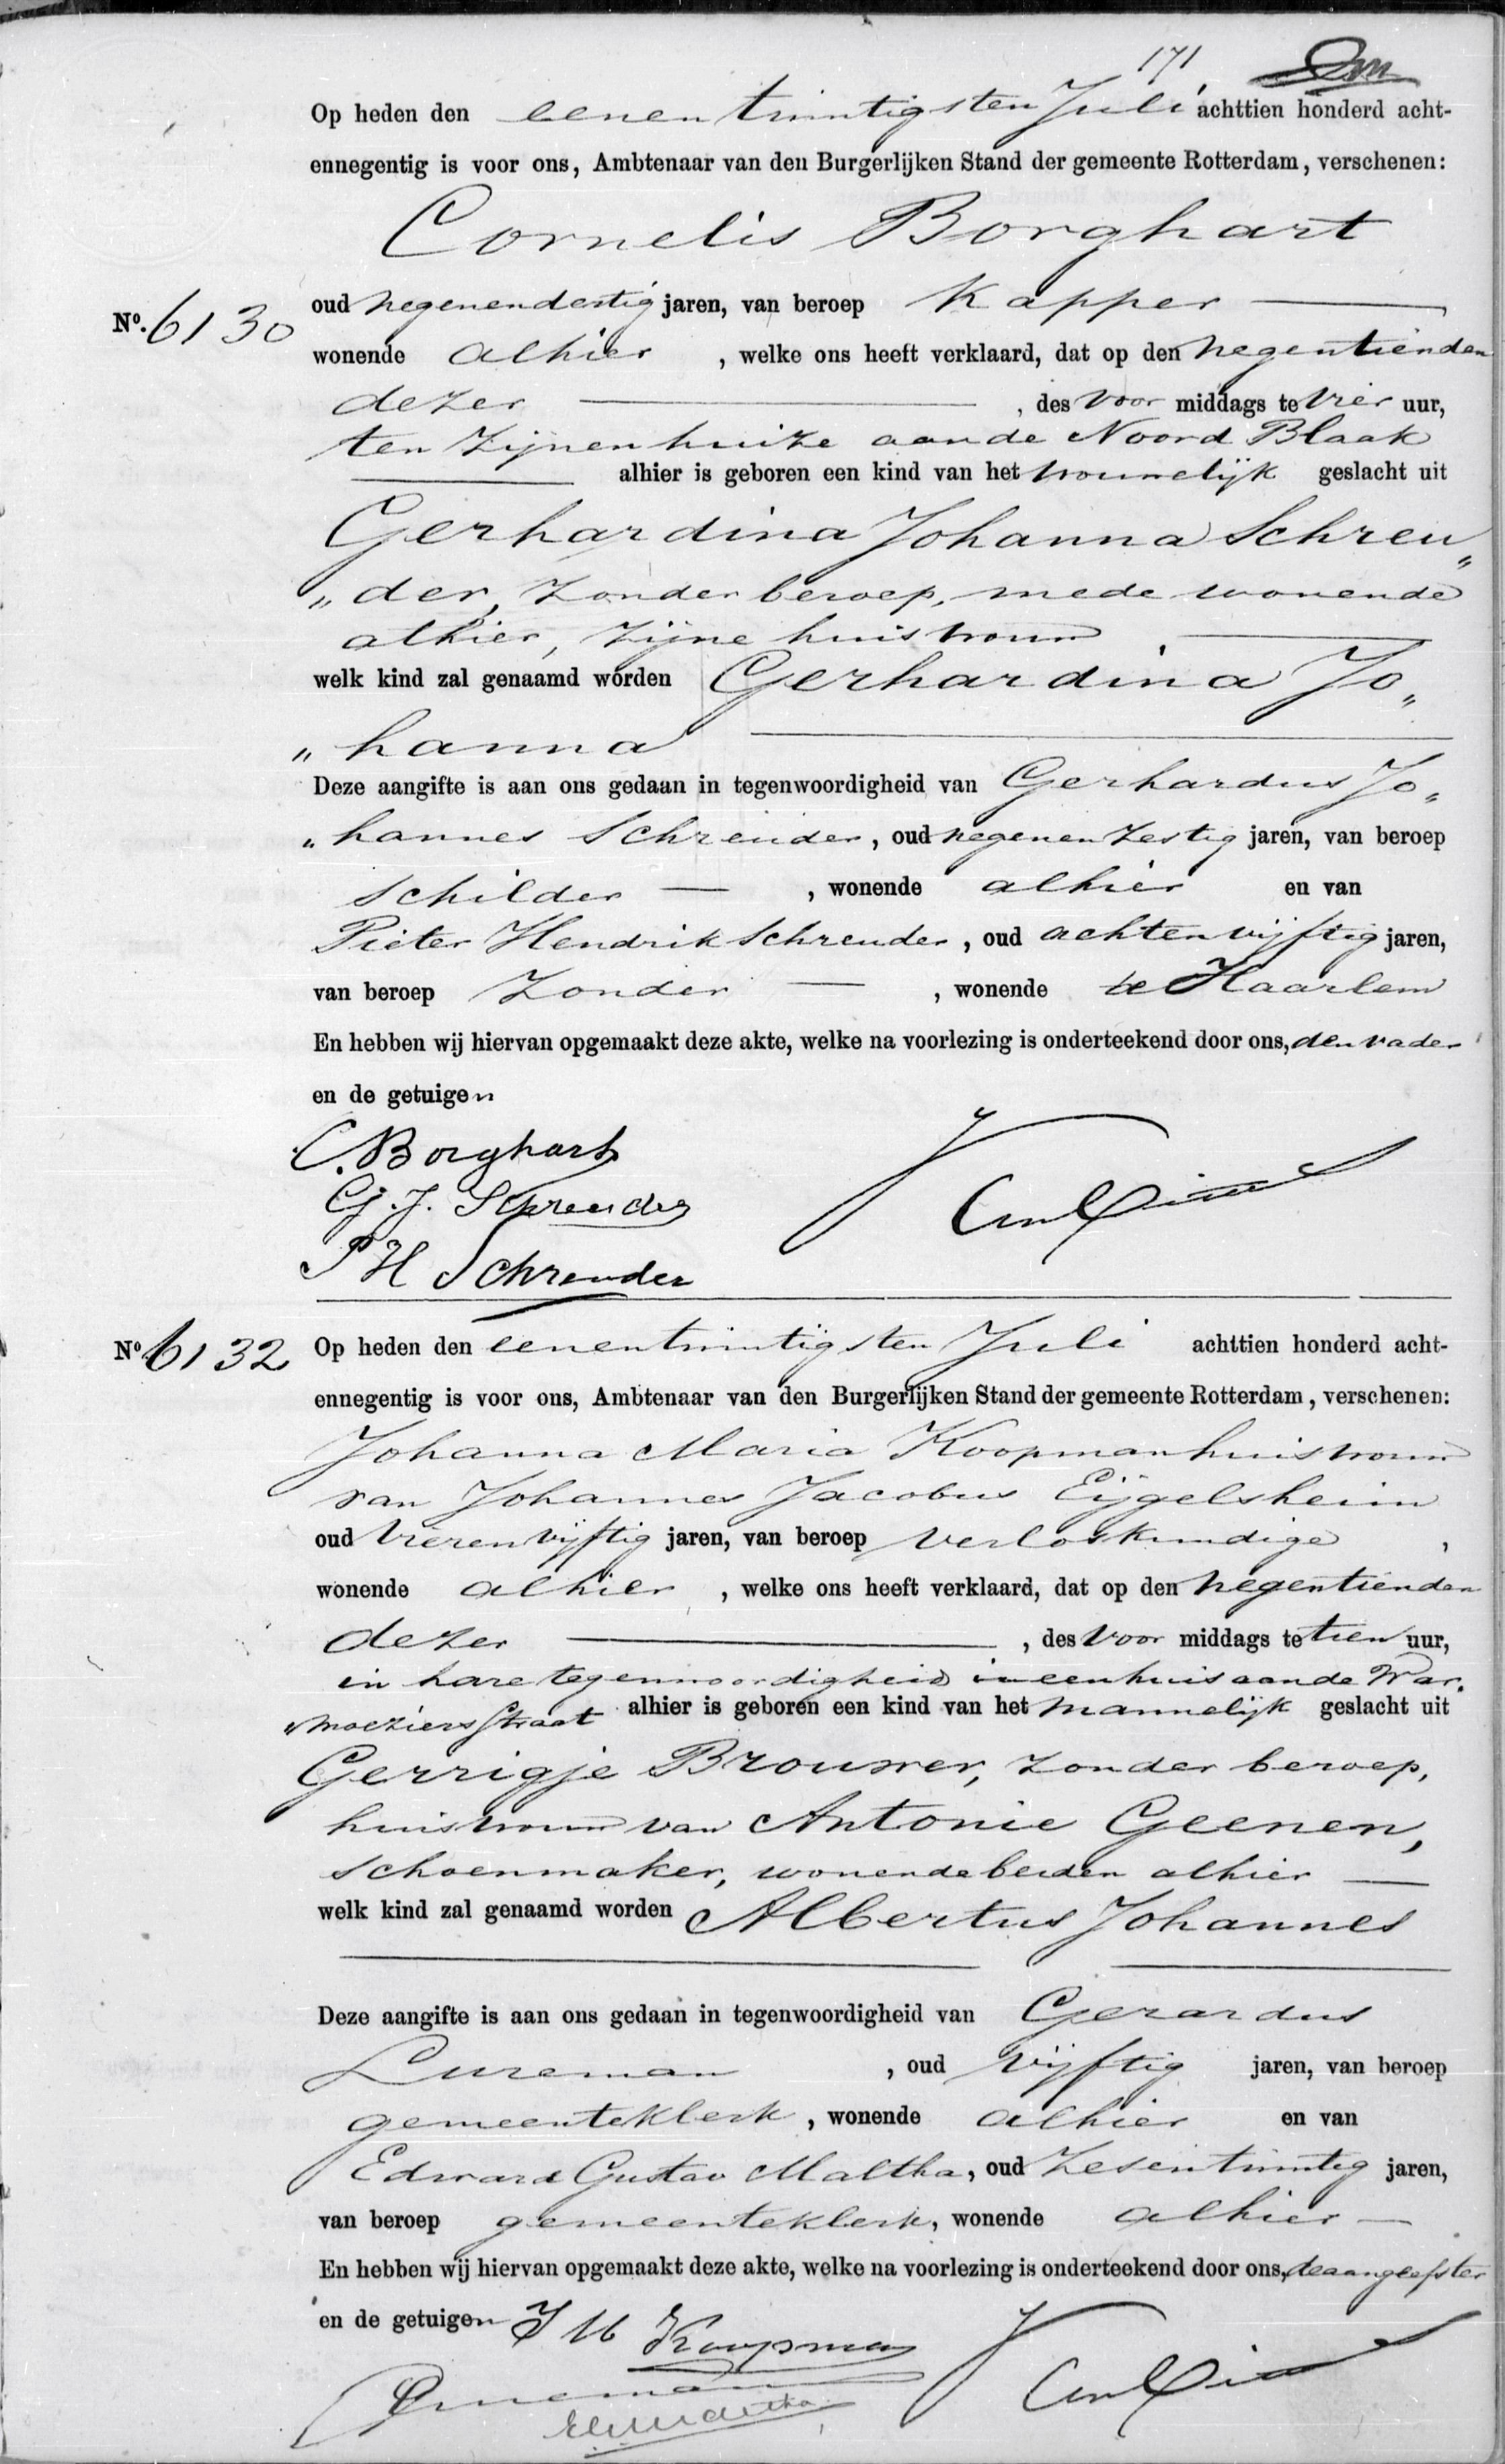 171
Op heden den eenentwintigsten Juli achttien honderd acht-
ennegentig is voor ons, Ambtenaar van den Burgerlijken Stand der gemeente Rotterdam, verschenen:
Cornelis Borghart
No. 6130
oud negenendertig jaren, van beroep Kapper
wonende alhier, welke ons heeft verklaard, dat op den negentienden
dezer, des voor middags te vier uur,
ten zijnen huize aan de Noord Blaak
alhier is geboren een kind van het vrouwelijk geslacht uit
Gerhardina Johanna Schreu„
„der, zonder beroep, mede wonende
alhier, zijne huisvrouw
welk kind zal genaamd worden Gerhardina Jo„
„hanna
Deze aangifte is aan ons gedaan in tegenwoordigheid van Gerhardus Jo„
„hannes Schreuder, oud negenenzestig jaren, van beroep
schilder, wonende alhier en van
Pieter Hendrik Schreuder, oud achtenvijftig jaren,
van beroep zonder, wonende te Haarlem
En hebben wij hiervan opgemaakt deze akte, welke na voorlezing is onderteekend door ons, den vader
en de getuigen
C. Borghart
G. J. Schreuder
P H Schreuder
No. 6132
Op heden den eenentwintigsten Juli achttien honderd acht-
ennegentig is voor ons, Ambtenaar van den Burgerlijken Stand der gemeente Rotterdam, verschenen:
Johanna Maria Koopman huisvrouw
van Johannes Jacobus Eijgelsheim
oud vierenvijftig jaren, van beroep verloskundige,
wonende alhier, welke ons heeft verklaard, dat op den negentienden
dezer, des voor middags te tien uur,
in hare tegenwoordigheid in een huis aan de War„
„moeziersstraat alhier is geboren een kind van het mannelijk geslacht uit
Gerrigje Brouwer, zonder beroep,
huisvrouw van Antonie Geenen,
schoenmaker, wonende beiden alhier
welk kind zal genaamd worden Albertus Johannes
Deze aangifte is aan ons gedaan in tegenwoordigheid van Gerardus
Lureman, oud vijftig jaren, van beroep
gemeenteklerk, wonende alhier en van
Edward Gustav Maltha, oud zesentwintig jaren,
van beroep gemeenteklerk, wonende alhier
En hebben wij hiervan opgemaakt deze akte, welke na voorlezing is onderteekend door ons, de aangeefster
en de getuigen
J M Koopman
EGMaltha